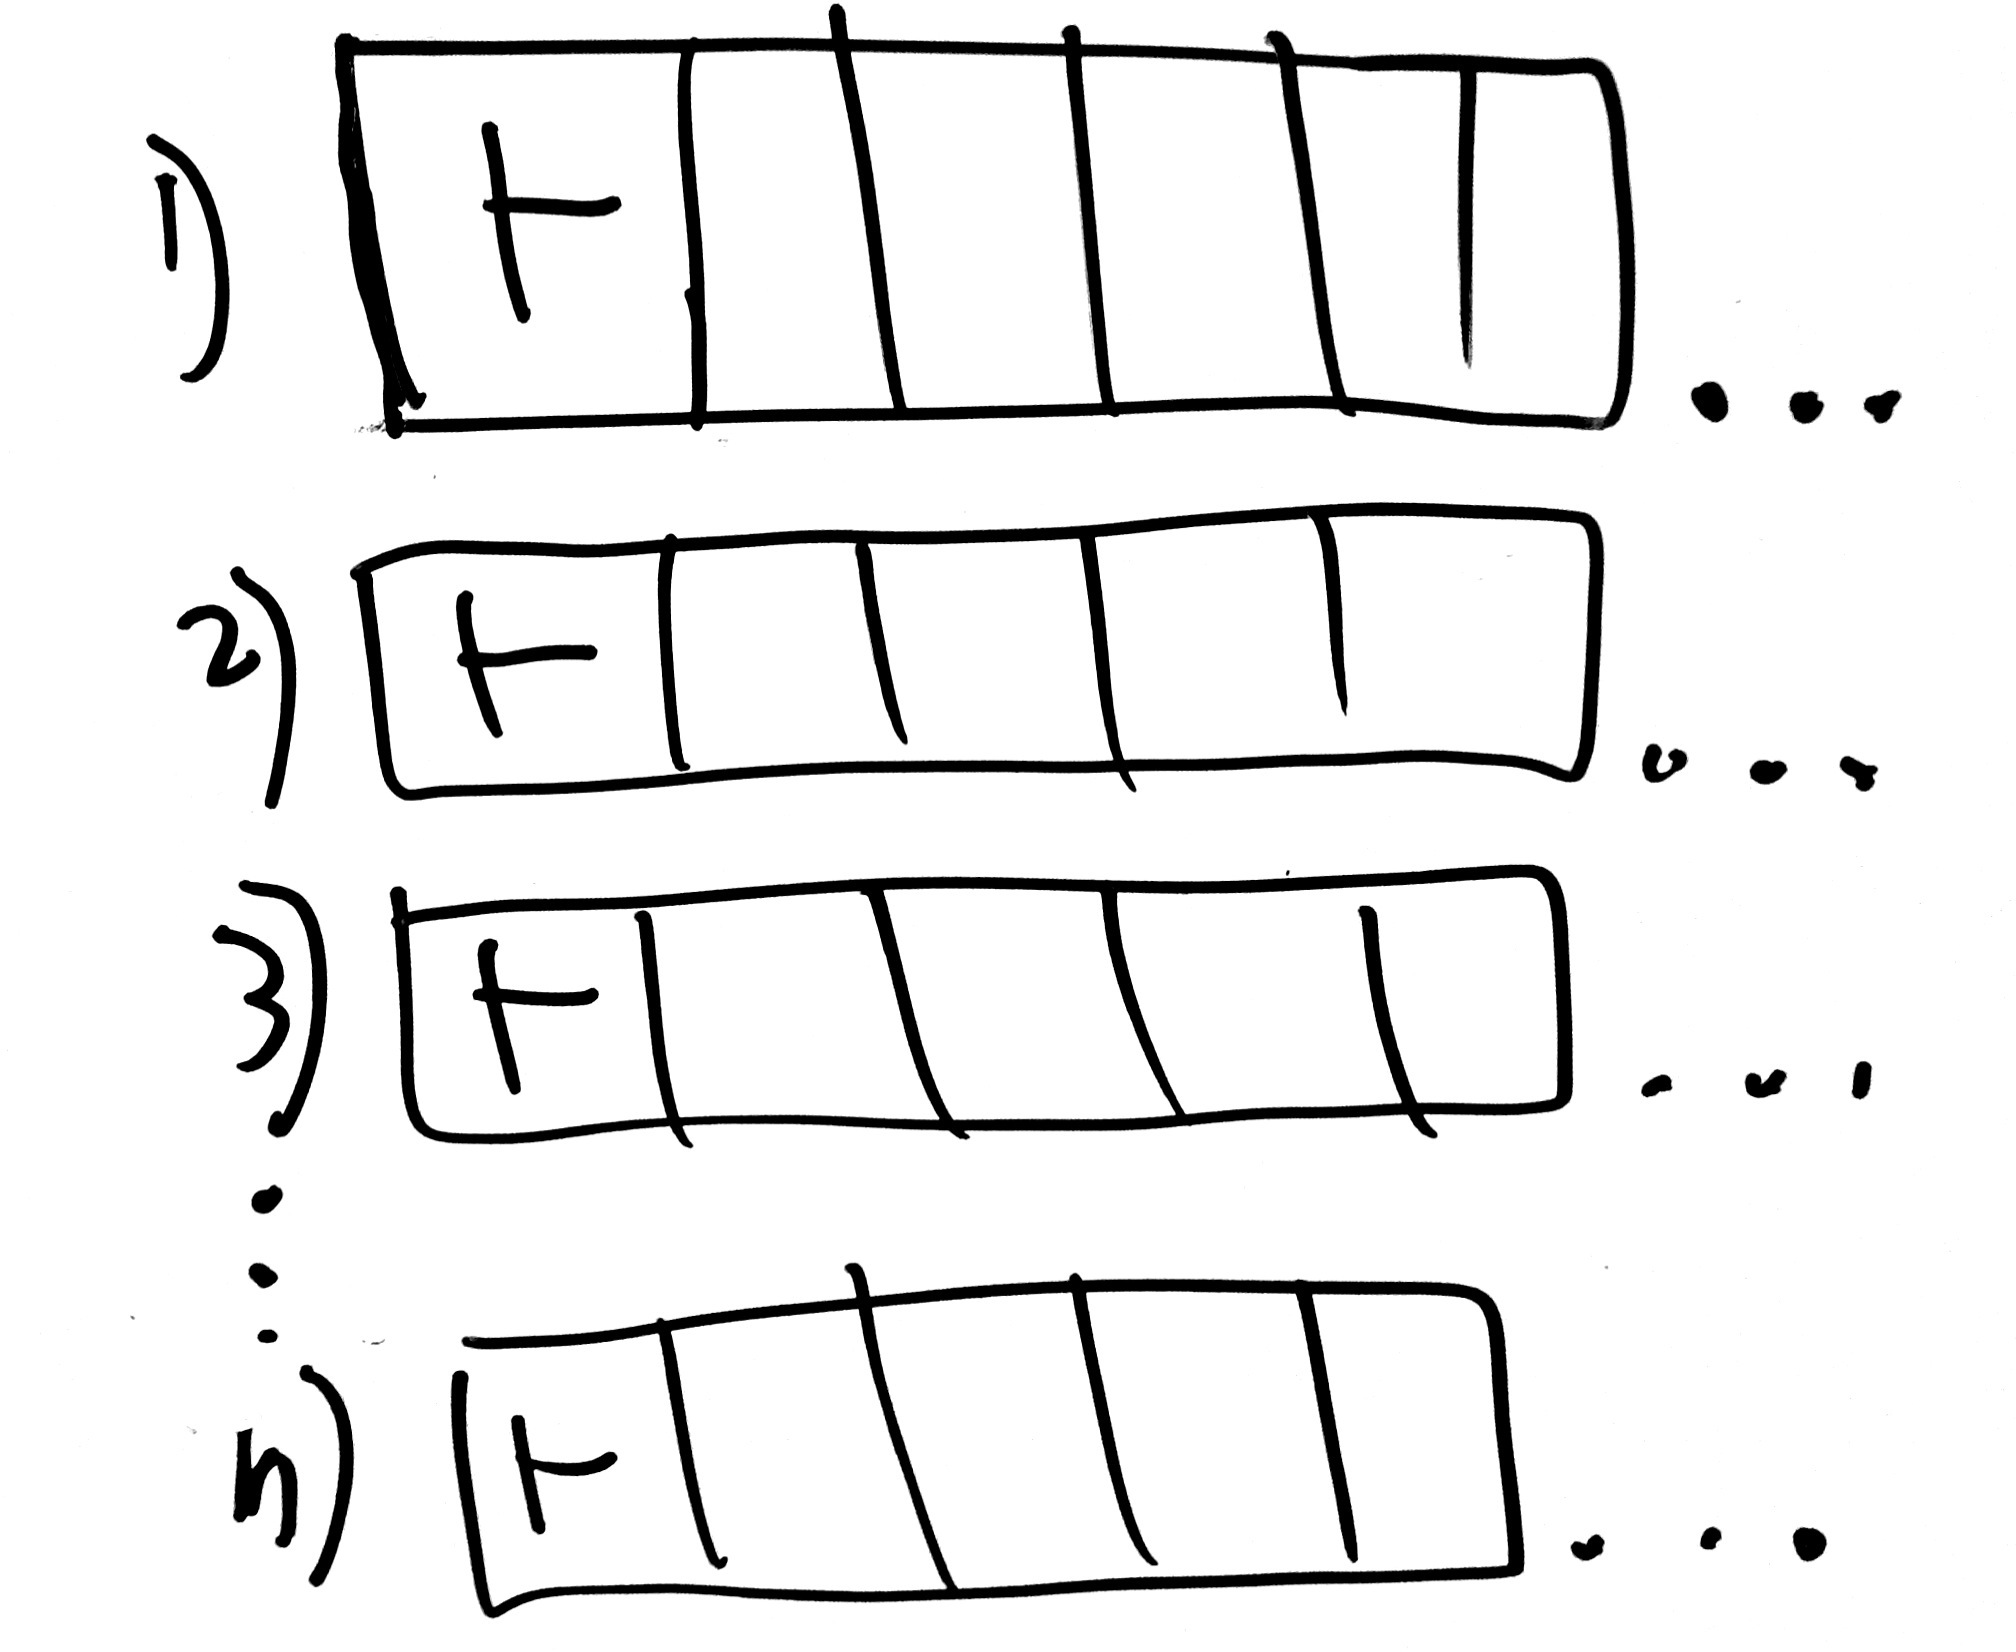 1) ⊢ ...
2) ⊢ ...
3) ⊢ ...
⋮
n) ⊢ ...